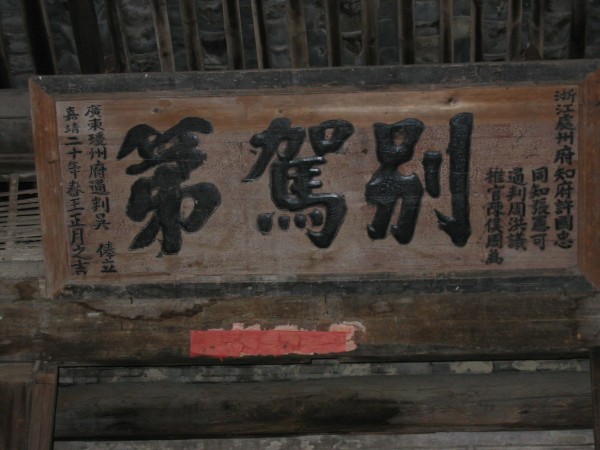 浙江處州府知府許國忠
同知張應可
通判周洪議
推官陳俊同為
別駕第
廣東瓊州府通判吳俸立
嘉靖二十年春王正月之吉